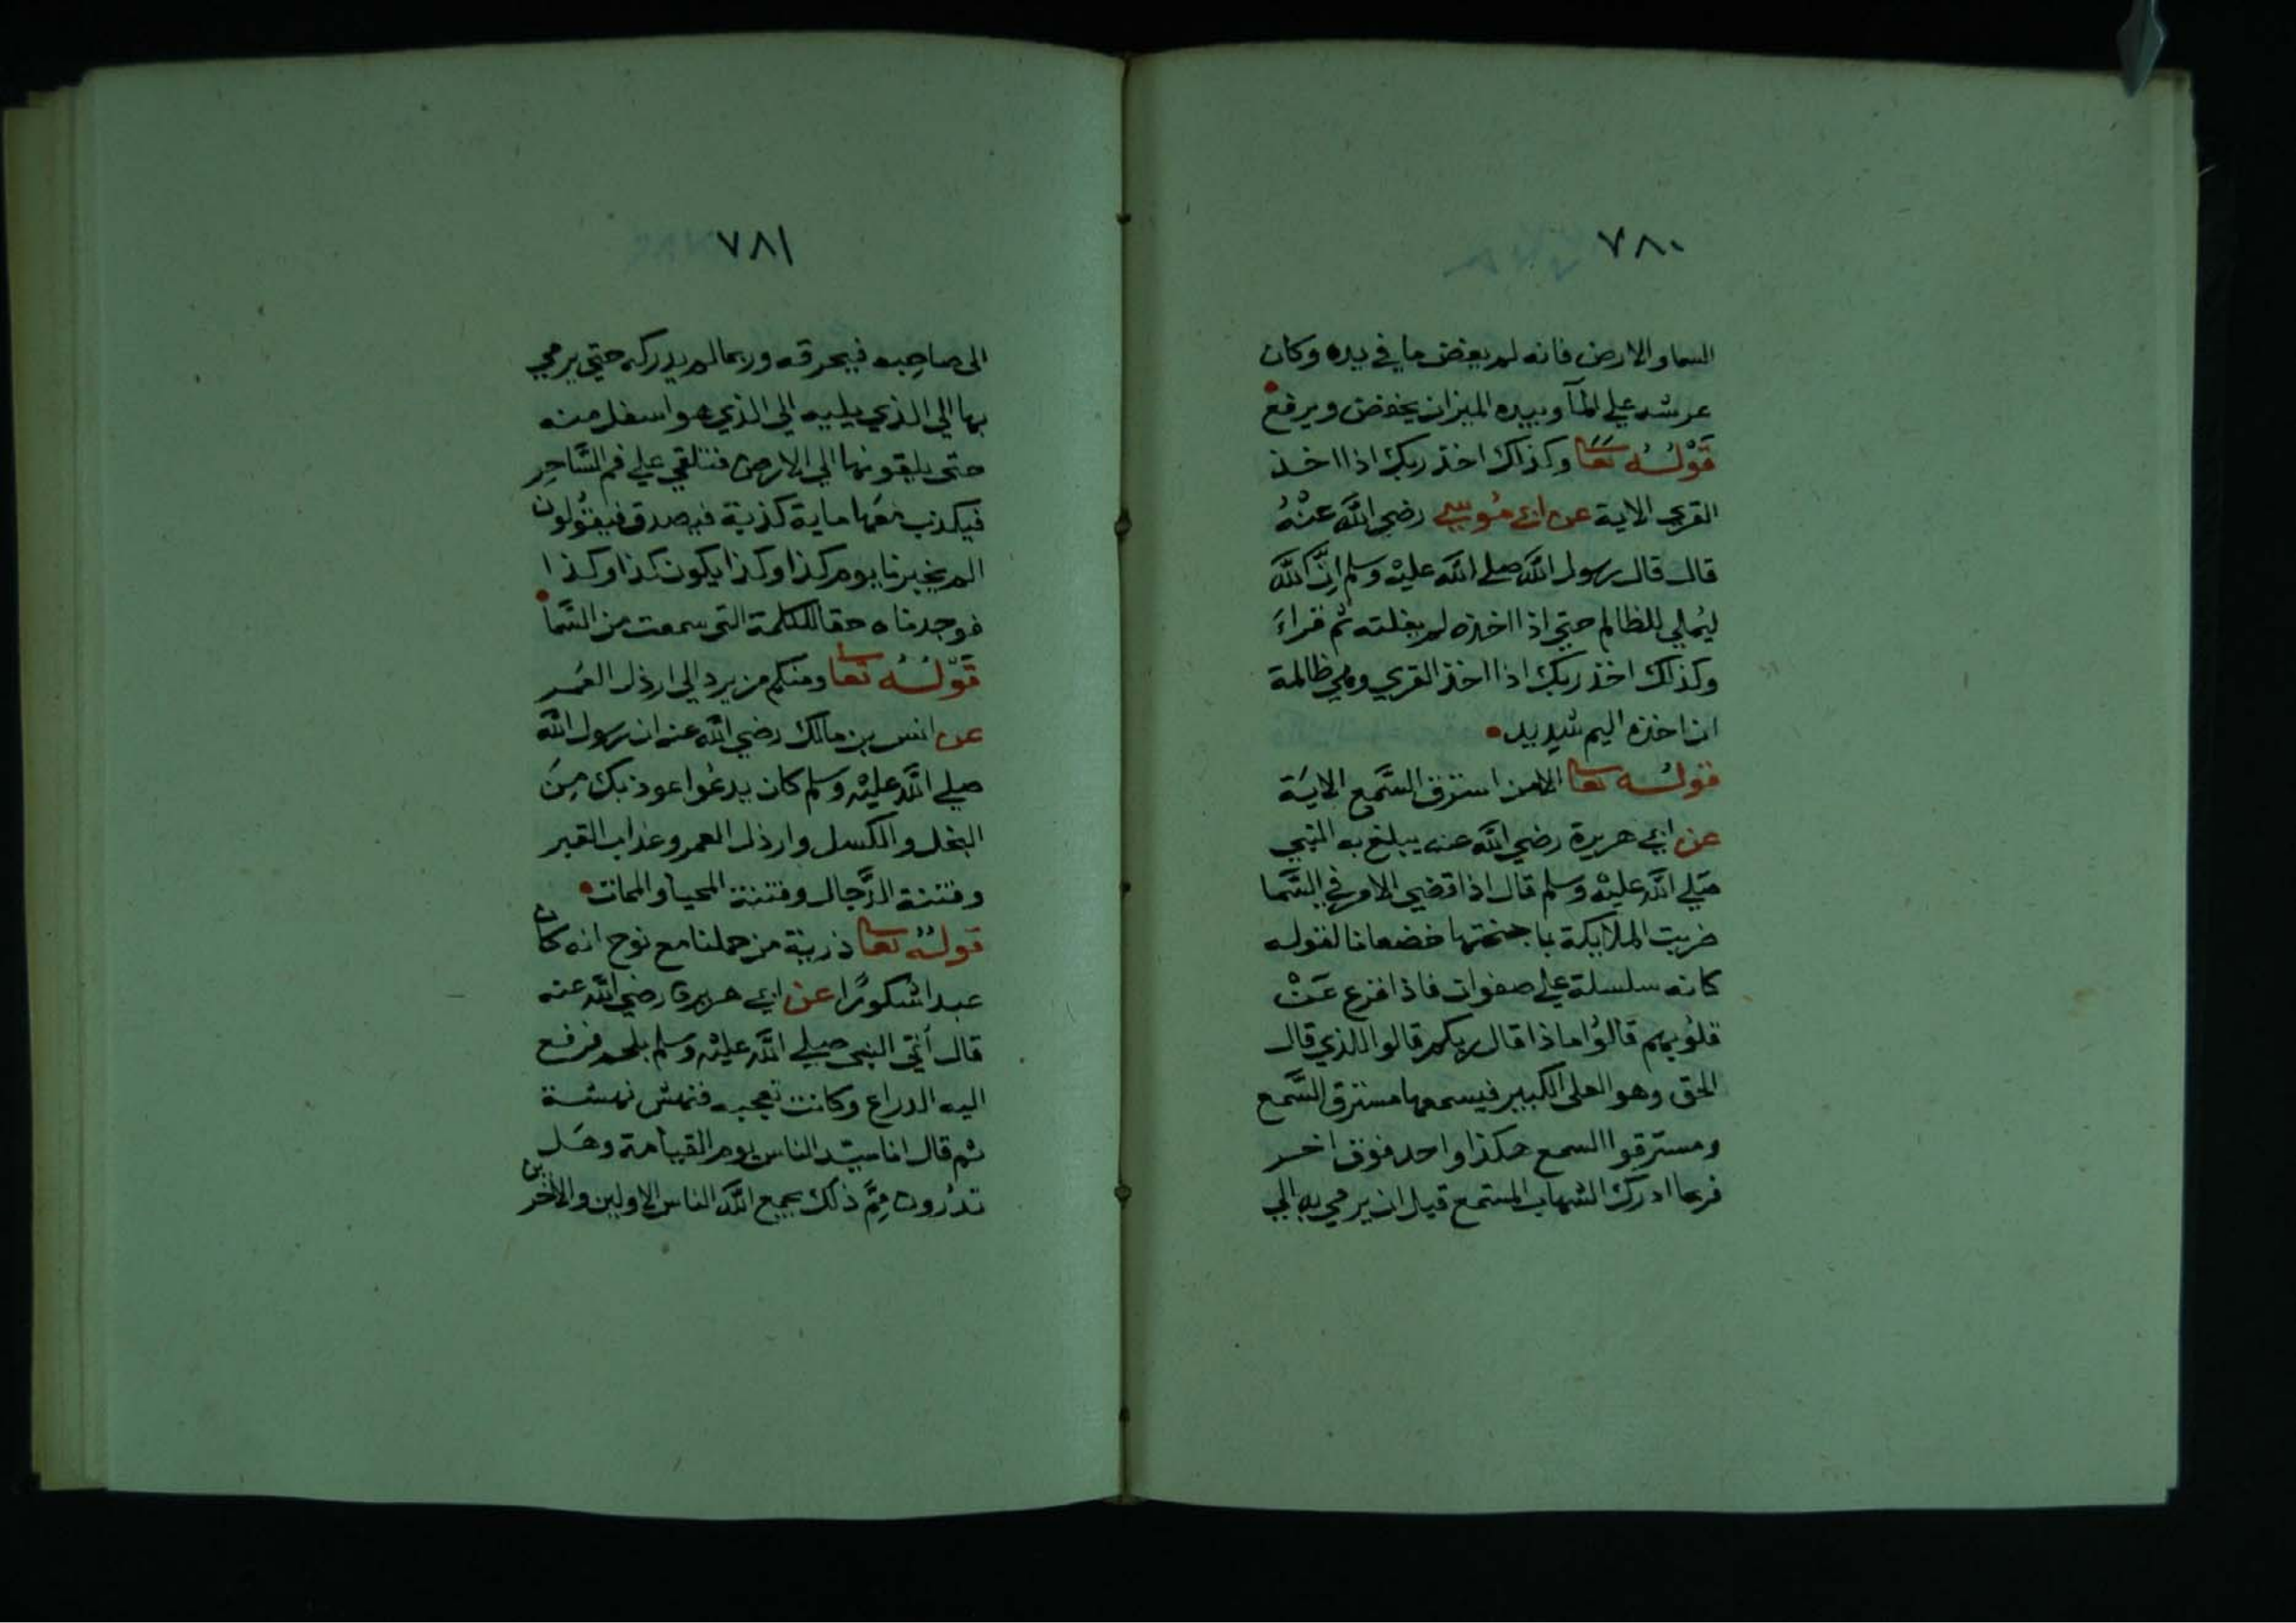 ٧٨٠
السما والارض فانه لم يغض ما في يده وكان
عرشه علي المآ وبيده الميزان يخفض ويرفع
قَوْلُهُ تَعَا وكذلك اخذ ربك اذا اخذ
القري الاية عن ابي مُوسي رضي اللَّه عَنْهُ
قال قال رسول اللَّه صلي اللَّه عليْه وَسلم اِنَّ اللَّه
ليُملي للظالم حتي اذا اخذه لم يفلته ثم قراءَ
وكذلك اخذ ربك اذا اخذ القري وهي ظالمة
ان اخذه اليم شديد
قولُه تعا الا من استرق السَّمع الايَة
عن ابي هريرة رضي اللَّه عنه يبلغ به النبي
صَلي اللَّه عليْه وَسلم قال اذا قضي الامر في السَّما
ضربت الملايكة باجنحتها خضعانا لقوله
كانه سلسلة علي صفوان فاذا فزع عَنْ
قلوُبهم قالوُا ماذا قال ربكم قالوا للذي قال
الحق وهو العلى الكبير فيسمعها مسترق السَّمع
ومسترقوا السمع هكذا واحد فوق اخر
فربما ادرك الشهاب المستمع قبل ان يرمي به الي
٧٨١
الى صاحِبه فيحرقه وربما لم يدركه حتي يرمي
بها الي الذي يليه الي الذي هو اسفل منه
حتى يلقونها الي الارض فتلقي علي فم السَّاحِر
فيكذب معَها ماية كذبة فيصدق فيقوُلون
الم يخبرنا يوم كذا وكذا يكون كذا وكذا
فوجدناه حقا للكلمة التي سمعت من السَّما
قَوّلُهُ تعا ومنكم من يرد الي ارذل العُمر
عن انس بن مالك رضي اللَّه عنه ان رسول اللَّه
صلي اللَّه عليْه وَسلم كان يدعُوا اعوذ بك مِنَ
البخل والكسل وارذل العمر وعذاب القبر
وفتنة الدَّجال وفتنة المحيا والممات
قولُهُ تعا ذرية من حملنا مع نوح انه كان
عبدا شكورًا عن ابي هريرة رضي اللَّه عنه
قال أتي النبي صلي اللَّه عليْه وَسلم بلحم فرفع
اليه الدراع وكانت تعجبه فنهش نهشة
ثم قال انا سيّد الناس يوم القيامة وهَل
تدرُون مِمَّ ذلك يجمع اللَّه الناس الاولين والاخرين